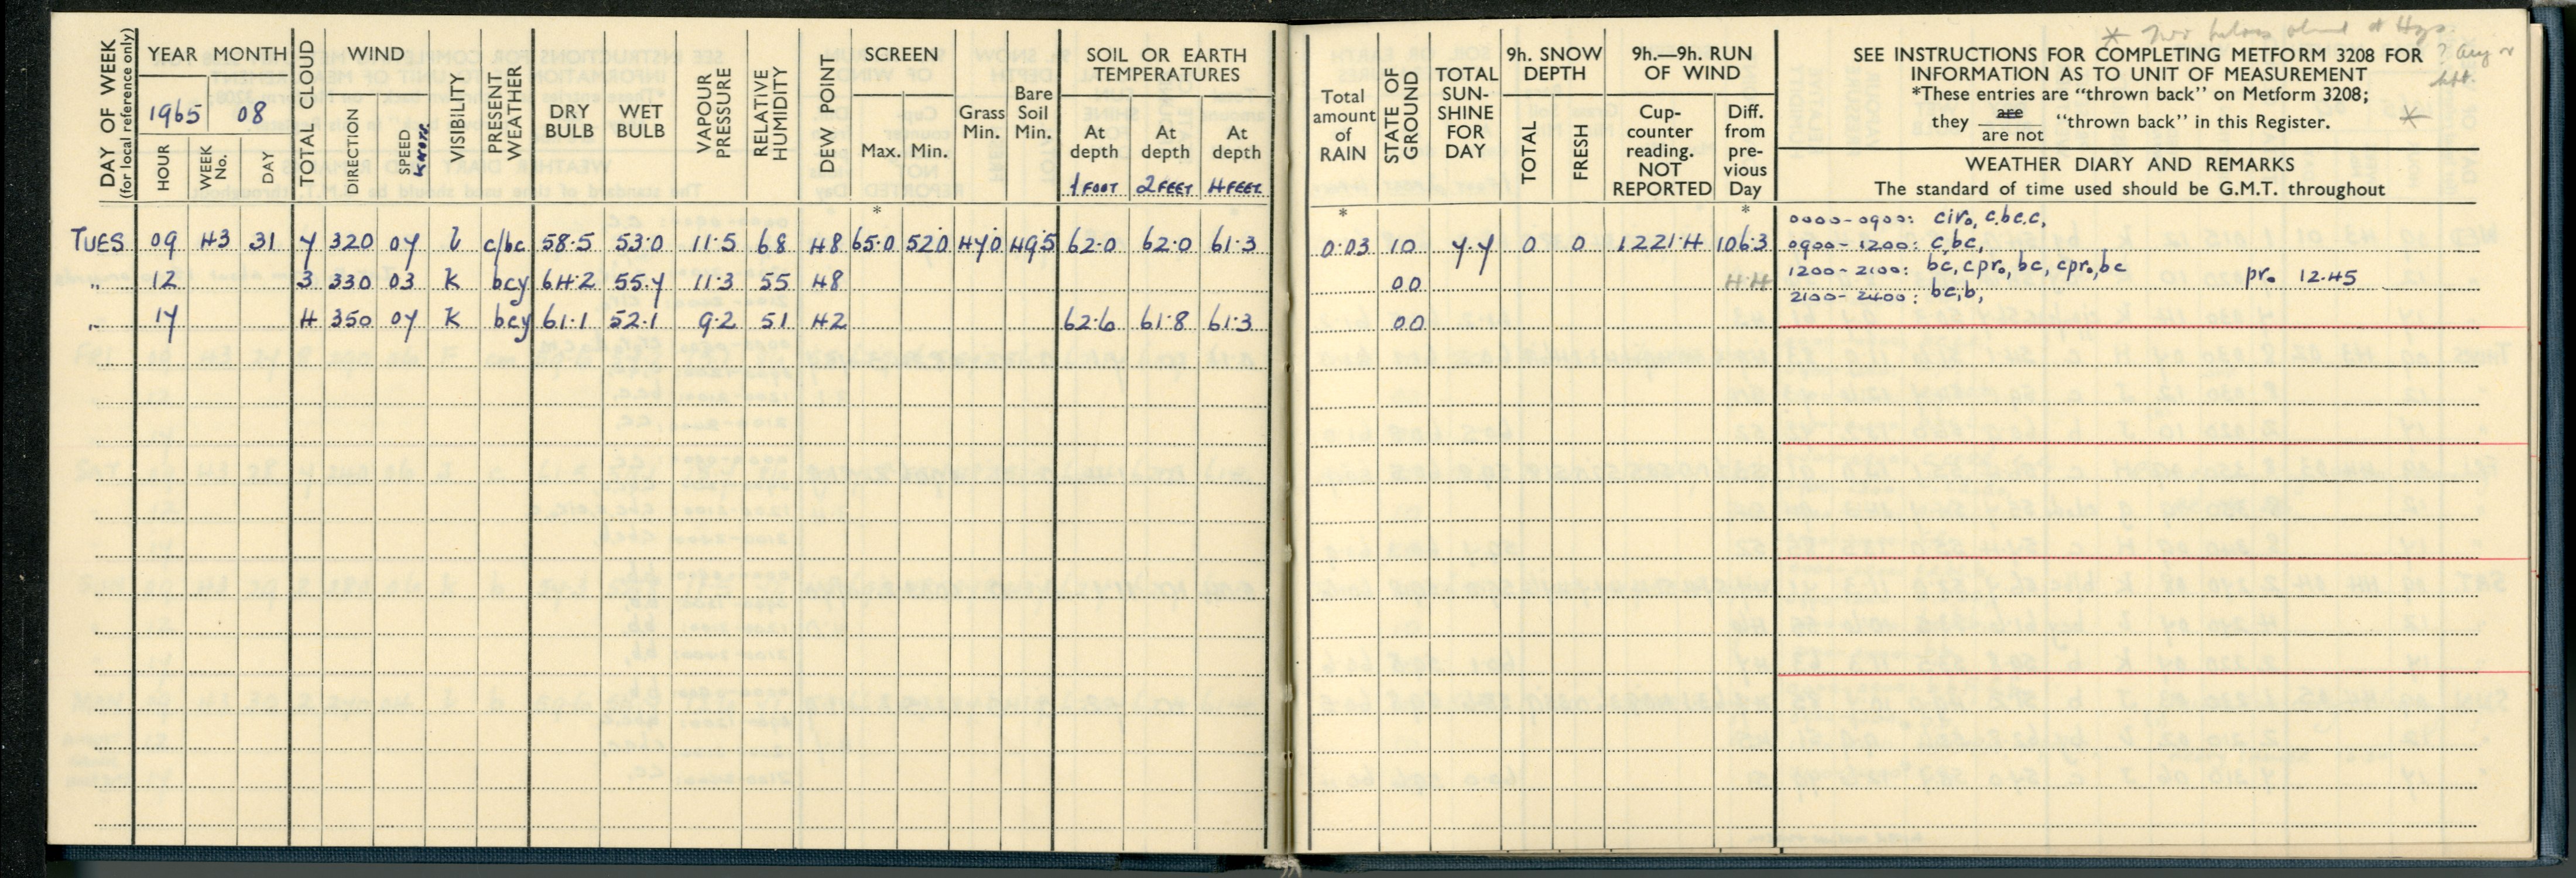 DAY OF WEEK
(for local reference only)
YEAR MONTH
1965 08
HOUR
WEEK No.
DAY
TOTAL CLOUD
WIND
DIRECTION
SPEED KNOTS
VISIBILITY
PRESENT WEATHER
DRY BULB
WET BULB
VAPOUR PRESSURE
RELATIVE HUMIDITY
DEW POINT
SCREEN
Max. Min.
Grass Min.
Bare Soil Min.
SOIL OR EARTH
TEMPERATURES
At depth 1 FOOT
At depth 2 FEET
At depth 4 FEET
Total amount of RAIN
STATE OF GROUND
TOTAL SUN-SHINE FOR DAY
9h. SNOW DEPTH
TOTAL
FRESH
9h.—9h. RUN OF WIND
Cup-counter reading. NOT REPORTED
Diff. from pre-vious Day
SEE INSTRUCTIONS FOR COMPLETING METFORM 3208 FOR
INFORMATION AS TO UNIT OF MEASUREMENT
*These entries are "thrown back" on Metform 3208;
they are / are not "thrown back" in this Register.
*
WEATHER DIARY AND REMARKS
The standard of time used should be G.M.T. throughout
* * *
TUES 09 43 31 7 320 07 l c/bc 58.5 53.0 11.5 68 48 65.0 52.0 47.0 49.5 62.0 62.0 61.3 0.03 10 7.7 0 0 1221.4 106.3
" 12 3 330 03 K bcy 64.2 55.7 11.3 55 48 00 4.4
" 17 4 350 07 K bcy 61.1 52.1 9.2 51 42 62.6 61.8 61.3 00
0000-0900: ciro, c,bc,c,
0900-1200: c,bc,
1200-2100: bc, cpro, bc, cpro, bc pro 12.45
2100-2400: bc,b,